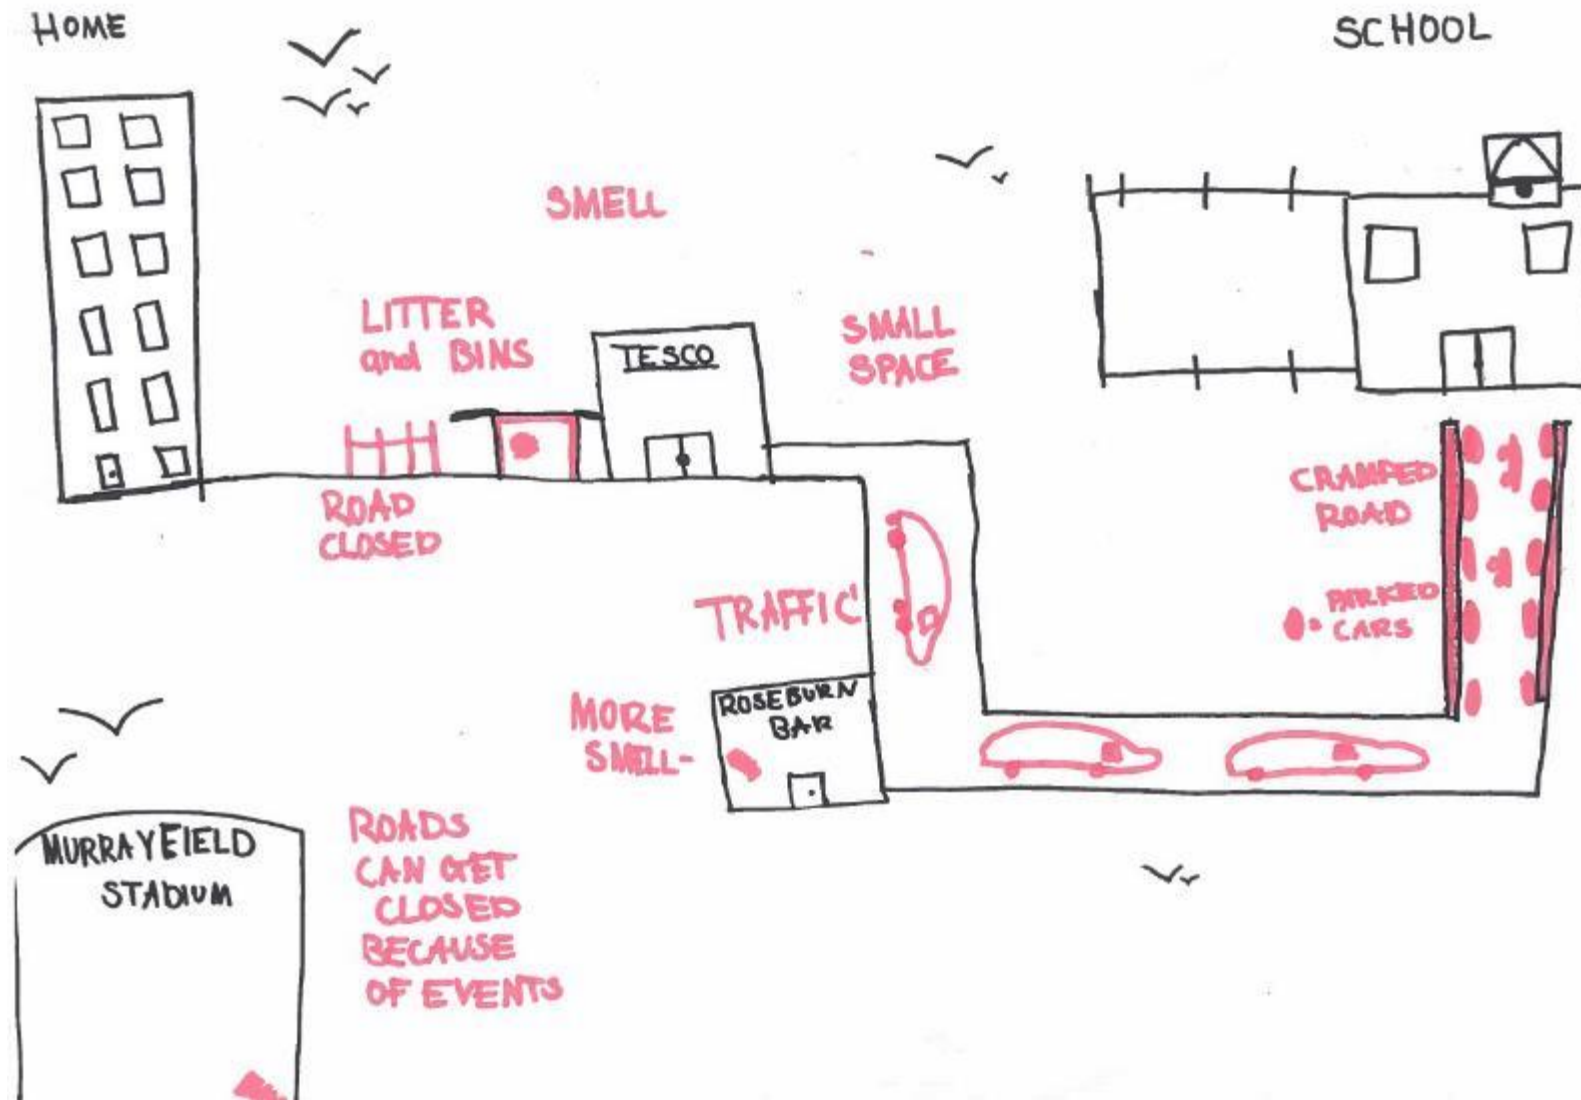 HOME
SCHOOL
SMELL
LITTER
and BINS
TESCO
SMALL
SPACE
ROAD
CLOSED
CRAMPED
ROAD
TRAFFIC
PARKED
CARS
MORE
SMELL-
ROSEBURN
BAR
MURRAYFIELD
STADIUM
ROADS
CAN GET
CLOSED
BECAUSE
OF EVENTS